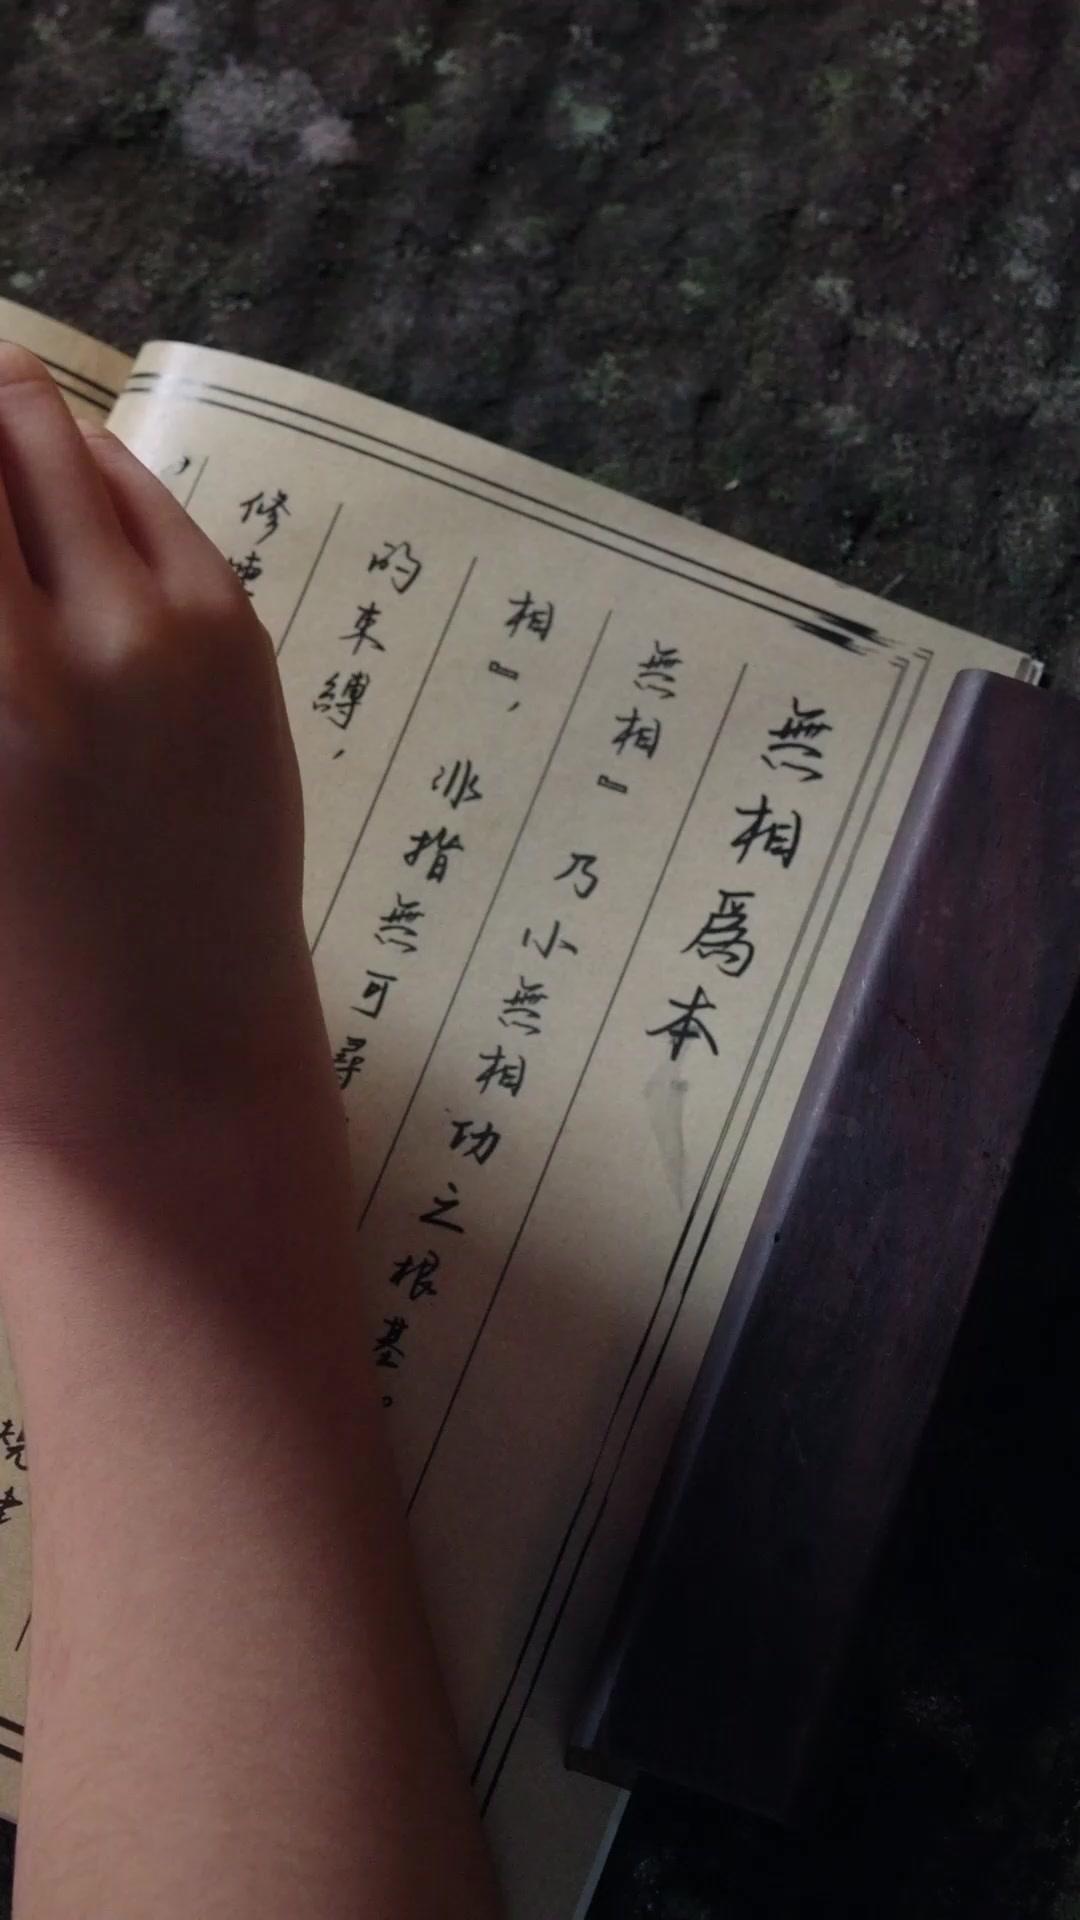 無相爲本
無相』乃小無相功之根基。
相』，非指無可尋
的束縛，
修